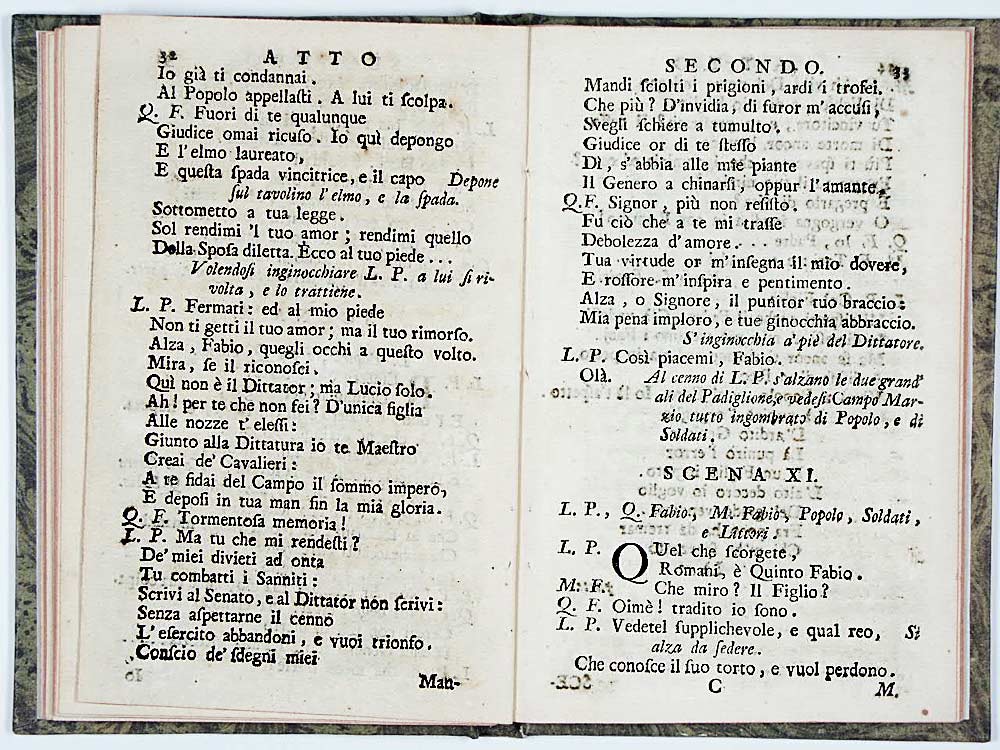 32 ATTO
Io già ti condannai.
Al Popolo appellaſti. A lui ti ſcolpa.
Q. F. Fuori di te qualunque
Giudice omai ricuſo. Io quì depongo
E l'elmo laureato,
E queſta ſpada vincitrice, e il capo Depone
ſul tavolino l'elmo, e la ſpada.
Sottometto a tua legge.
Sol rendimi 'l tuo amor; rendimi quello
Della Spoſa diletta. Ecco al tuo piede...
Volendoſi inginocchiare L. P. a lui ſi ri-
volta, e lo trattiene.
L. P. Fermati: ed al mio piede
Non ti getti il tuo amor; ma il tuo rimorſo.
Alza, Fabio, quegli occhi a queſto volto.
Mira, ſe il riconoſci.
Quì non è il Dittator; ma Lucio ſolo.
Ah! per te che non fei? D'unica figlia
Alle nozze t'eleſſi:
Giunto alla Dittatura io te Maeſtro
Creai de' Cavalieri:
A te fidai del Campo il ſommo impero,
E depoſi in tua man fin la mia gloria.
Q. F. Tormentoſa memoria!
L. P. Ma tu che mi rendeſti?
De' miei divieti ad onta
Tu combatti i Sanniti:
Scrivi al Senato, e al Dittator non ſcrivi:
Senza aſpettarne il cenno
L'eſercito abbandoni, e vuoi trionfo.
Conſcio de' ſdegni miei
Man-
SECONDO. 33
Mandi ſciolti i prigioni, ardi i trofei.
Che più? D'invidia, di furor m'accuſi,
Svegli ſchiere a tumulto.
Giudice or di te ſteſſo
Dì, s'abbia alle mie piante
Il Genero a chinarſi, oppur l'amante.
Q. F. Signor, più non reſiſto.
Fu ciò che a te mi traſſe
Debolezza d'amore...
Tua virtude or m'inſegna il mio dovere,
E roſſore m'inſpira e pentimento.
Alza, o Signore, il punitor tuo braccio:
Mia pena imploro, e tue ginocchia abbraccio.
S'inginocchia a' piè del Dittatore.
L. P. Così piacemi, Fabio.
Olà. Al cenno di L. P. s'alzano le due grand'
ali del Padiglione, e vedeſi Campo Mar-
zio tutto ingombrato di Popolo, e di
Soldati.
SCENA XI.
L. P., Q. Fabio, M. Fabio, Popolo, Soldati,
e Littori.
L. P. QUel che ſcorgete,
Romani, è Quinto Fabio.
M. F. Che miro? Il Figlio?
Q. F. Oimè! tradito io ſono.
L. P. Vedetel ſupplichevole, e qual reo, Si
alza da ſedere.
Che conoſce il ſuo torto, e vuol perdono.
C M.